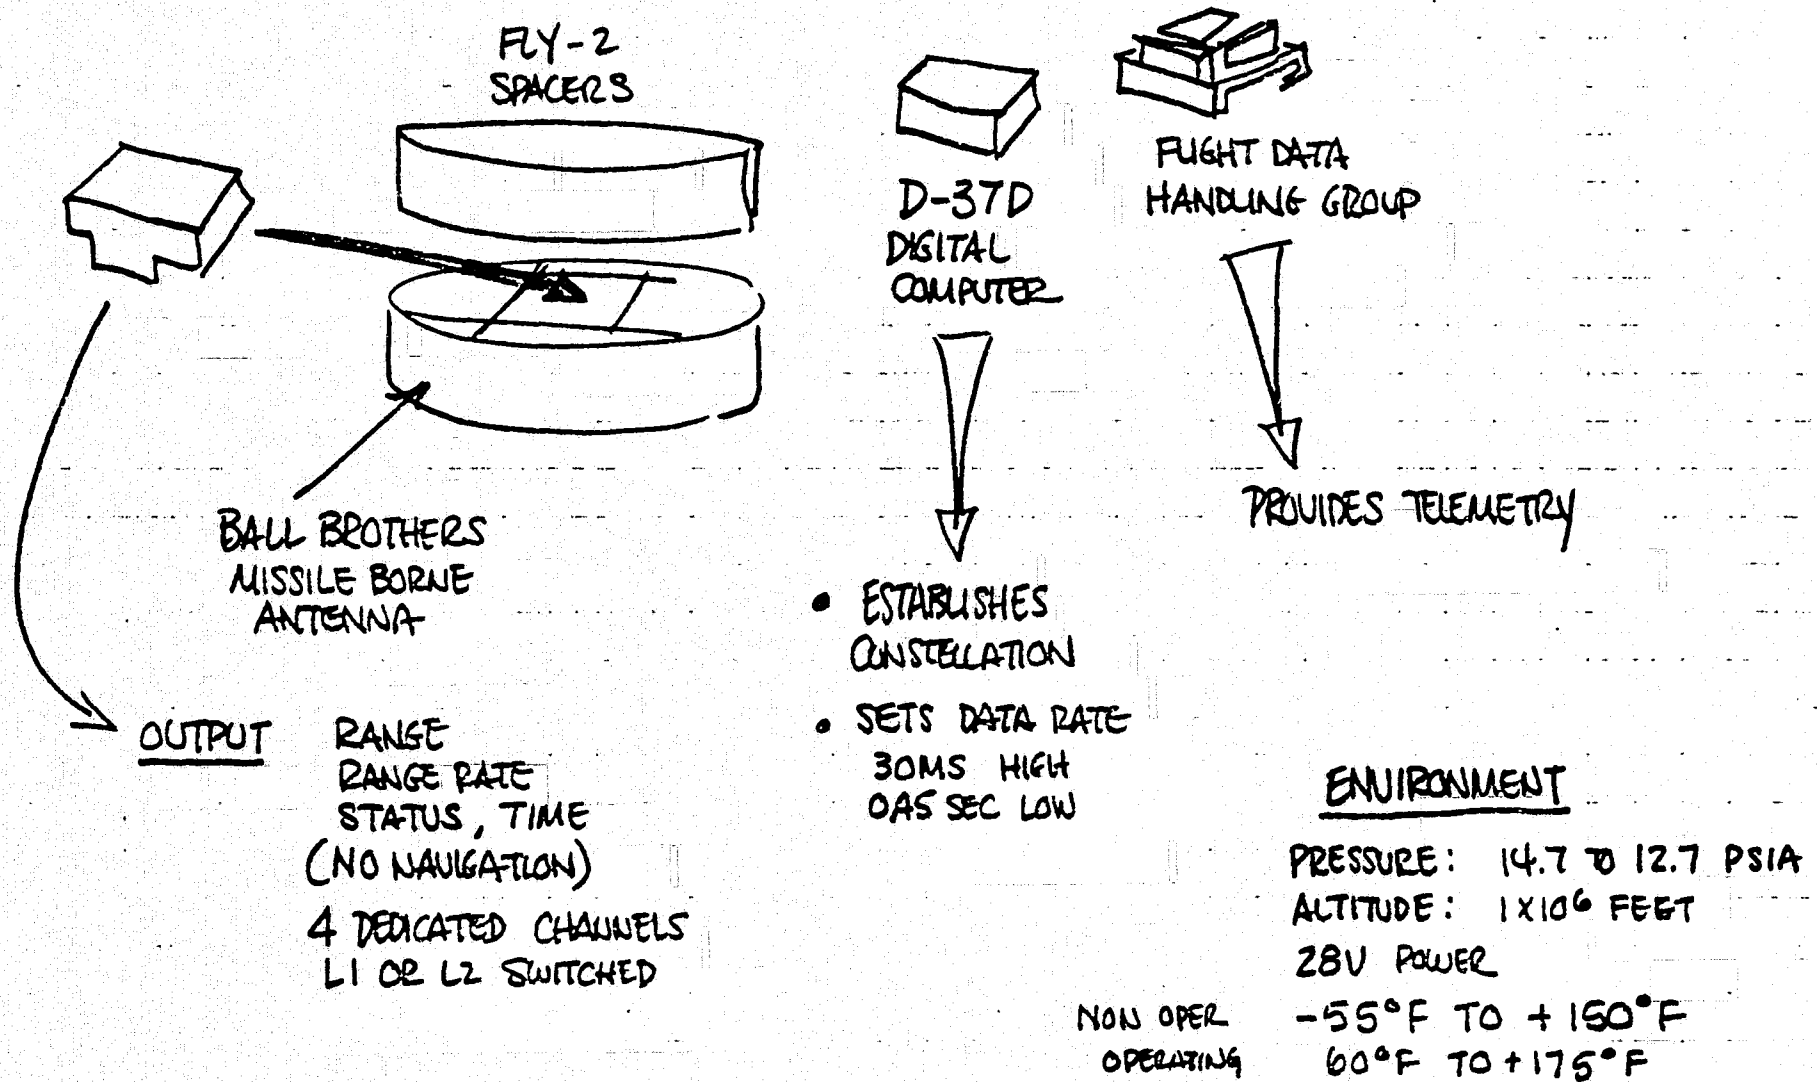 FLY-2
SPACERS
D-37D
DIGITAL
COMPUTER
FLIGHT DATA
HANDLING GROUP
BALL BROTHERS
MISSILE BORNE
ANTENNA
PROVIDES TELEMETRY
• ESTABLISHES
CONSTELLATION
• SETS DATA RATE
30MS HIGH
0.45 SEC LOW
OUTPUT RANGE
RANGE RATE
STATUS, TIME
(NO NAVIGATION)
4 DEDICATED CHANNELS
L1 OR L2 SWITCHED
ENVIRONMENT
PRESSURE: 14.7 TO 12.7 PSIA
ALTITUDE: 1X10⁶ FEET
28V POWER
NON OPER -55°F TO +150°F
OPERATING 60°F TO +175°F